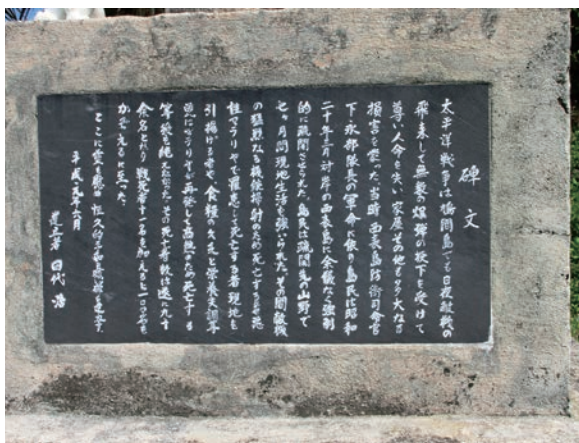 碑文
太平洋戦争は鳩間島でも日夜敵機の
飛来して無数の爆弾の投下を受けて
尊い人命を失い、家屋その他も多大なる
損害を蒙った。当時西表島防衛司令官
下永部隊長の軍命に依り島民は昭和
二十年三月対岸の西表島に余儀なく強制
的に疎開させられた。島民は疎開先の山野で
七ヶ月間現地生活を強いられた。その間敵機
の猛烈なる機銃掃射のため死亡する者や悪
性マラリヤで罹患して死亡する者現地を
引揚げる者や、食糧の欠乏と栄養失調
更にマラリヤが再発して高熱のため死亡する
等後を絶えなかった。その死亡者数は遂に九十
余名となり戦死者十一名を加えると一〇〇名を
かぞえるに至った。
ここに霊を慰め恒久の平和を
平成十九年六月
建立者 田代 浩